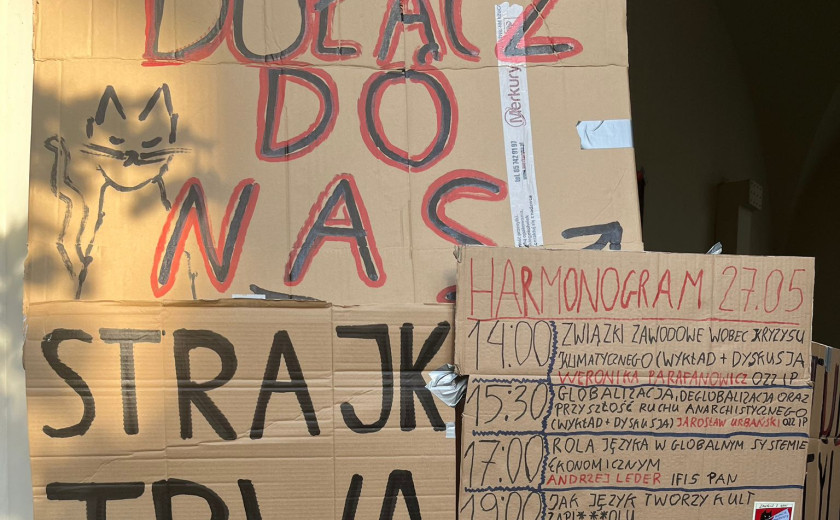 DOŁĄCZ
DO
NAS
Merkury
STRAJK
TRWA
HARMONOGRAM 27.05
14:00 ZWIĄZKI ZAWODOWE WOBEC KRYZYSU
KLIMATYCZNEGO (WYKŁAD + DYSKUSJA
WERONIKA PARAFANOWICZ OZZ IP
15:30 GLOBALIZACJA, DEGLOBALIZACJA ORAZ
PRZYSZŁOŚĆ RUCHU ANARCHISTYCZNEGO
(WYKŁAD + DYSKUSJA) JAROSŁAW URBAŃSKI OZZ IP
17:00 ROLA JĘZYKA W GLOBALNYM SYSTEMIE
EKONOMICZNYM
ANDRZEJ LEDER IFIS PAN
19:00 JAK JĘZYK TWORZY KULT
ZAPI***DOLU